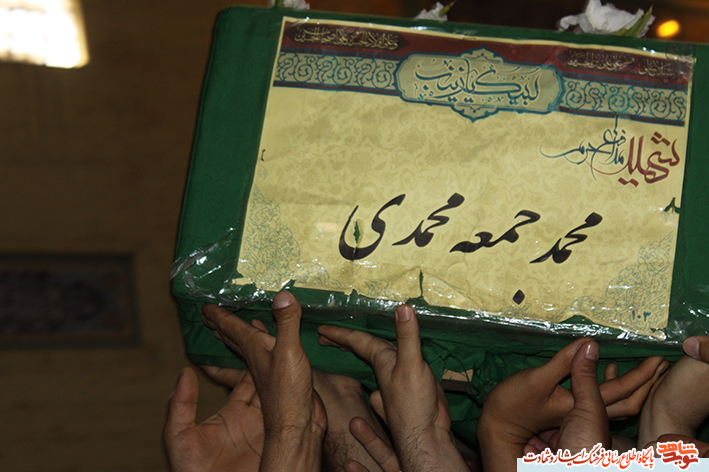 لبیک یا زینب
شهید
مدافع حرم
محمد جمعه محمدی
۱۰۳
نوید شاهد
پایگاه اطلاع رسانی فرهنگ ایثار و شهادت